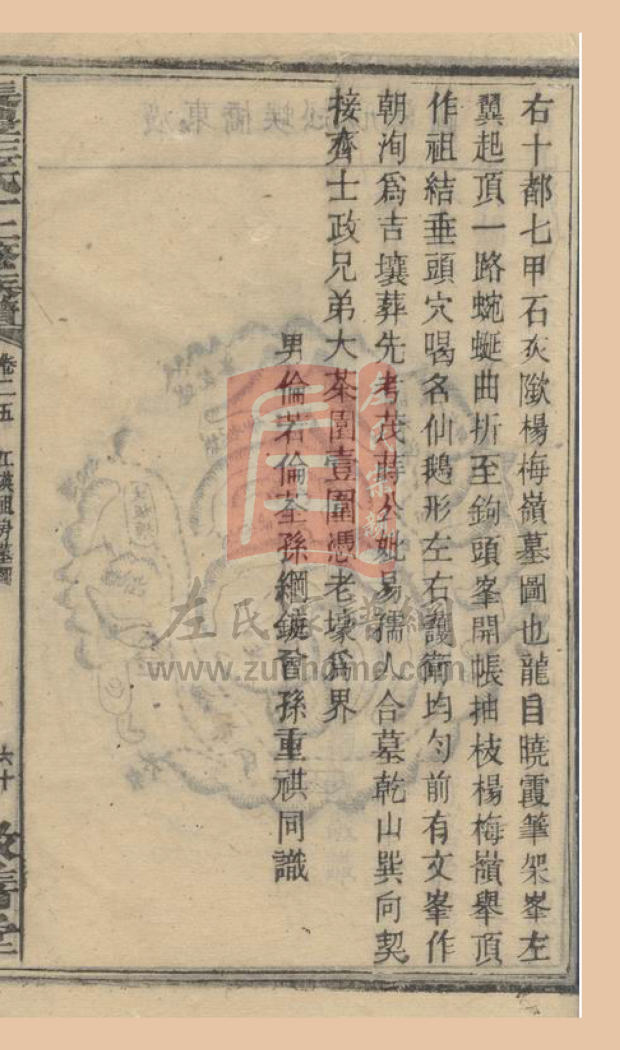 右十都七甲石灰隞楊梅嶺墓圖也龍自曉霞筆架峯左
翼起頂一路蜿蜒曲折至鉤頭峯開帳抽枝楊梅嶺舉頂
作祖結垂頭穴喝名仙鵝形左右護衛均勻前有文峯作
朝洵爲吉壤葬先考茂蒔公妣易孺人合墓乾山巽向契
接齊士政兄弟大茶園壹圍憑老壕爲界
男倫若倫荃孫綱鏇曾孫重祺同識
卷二五
六十
左氏家譜網
www.zuohome.com